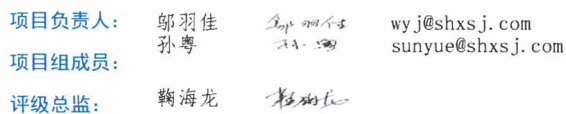 项目负责人： 邬羽佳 邬羽佳 wyj@shxsj.com
孙粤 孙粤 sunyue@shxsj.com
项目组成员：
评级总监： 鞠海龙 鞠海龙